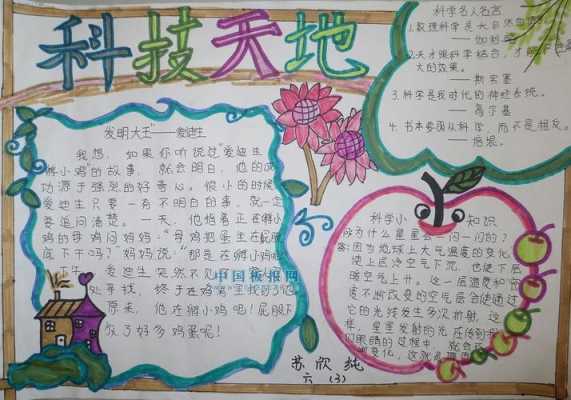 科技天地
发明大王"——爱迪生
我想,如果你听说过"爱迪生
孵小鸡"的故事,就会明白,他的成
功源于强烈的好奇心。很小的时候
爱迪生只要一有不明白的事,就一定
要追问清楚。一天,他指着正在孵小
鸡的母鸡问妈妈:"母鸡把蛋坐在屁股
底下干吗?"妈妈说:"那是在孵小鸡呢
爱迪生突然不见了
处寻找,终于在鸡窝里找到了他
原来,他在孵小鸡呢!屁股下
放了好多鸡蛋呢!
中国板报网
科学名人名言
1.数理科学是大自然
——伽利略
2.天才跟科学结合,才能
大的效果。
——斯宾塞
3.科学是我时代的神经系统。
——高尔基
4.书本要随从科学,而不是相反。
——培根。
科学小知识
为什么星星会一闪一闪的?
答:因为地球上大气温度的变化,
使上层冷空气下沉,也使下层
暖空气上升。这一层温度和密
度不断改变的空气层会使通过
它的光线发生多次折射,这
样,星星发射的光在传到
们眼睛的过程中,就会
变化,这就是
苏欣纯
六(3)